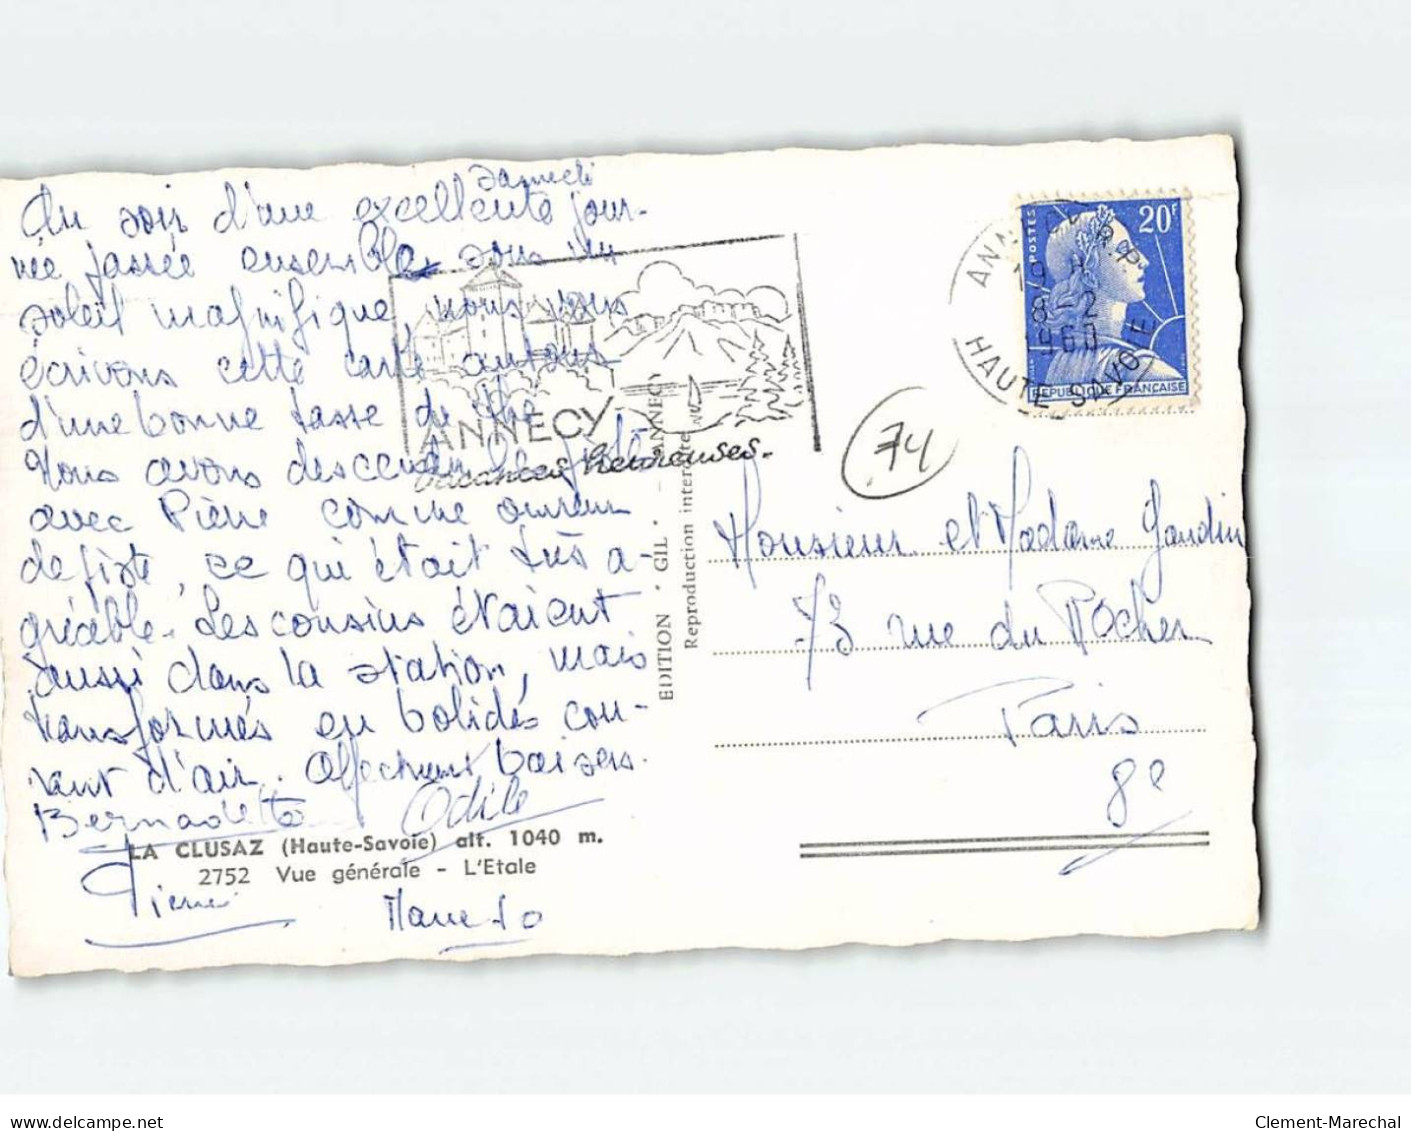 Samedi
Au soir d'une excellente jour-
née passée ensemble sous un
soleil magnifique, nous vous
écrivons cette carte autour
d'une bonne tasse de thé
Nous avons descendu la piste
avec Pierre comme ouvreur
de piste, ce qui était très a-
gréable. Les cousins étaient
aussi dans la station, mais
transformés en bolides cou-
rant d'air. Affectueux baisers.
Bernadette Odile
Pierre
LA CLUSAZ (Haute-Savoie) alt. 1040 m.
2752 Vue générale - L'Etale
ANNECY
Vacances heureuses.
EDITION * GIL * - ANNECY
Reproduction interdite
POSTES
20F
REPUBLIQUE FRANÇAISE
ANNECY R.P.
8-2
1960
HAUTE-SAVOIE
74
Monsieur et Madame Gandin
73 rue du Rocher
Paris
8e
delcampe.net
Clement-Marechal